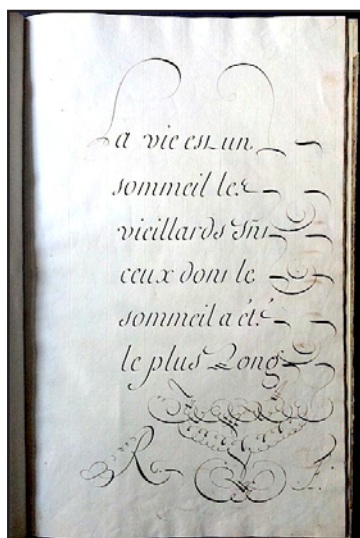 La vie est un
sommeil les
vieillards Sñt
ceux dont le
sommeil a été
le plus Long
R F.